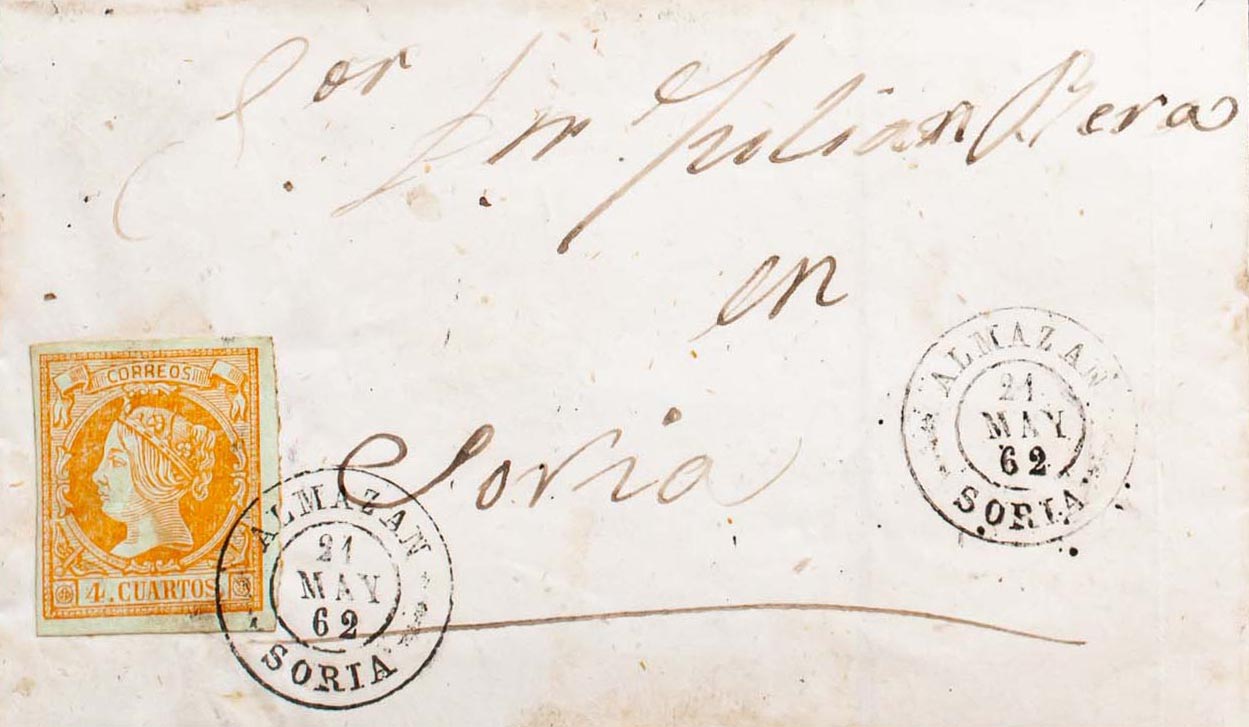 Sor Dn Julian Vera
en
Soria
CORREOS
4. CUARTOS
ALMAZAN
21
MAY
62
SORIA
ALMAZAN
21
MAY
62
SORIA